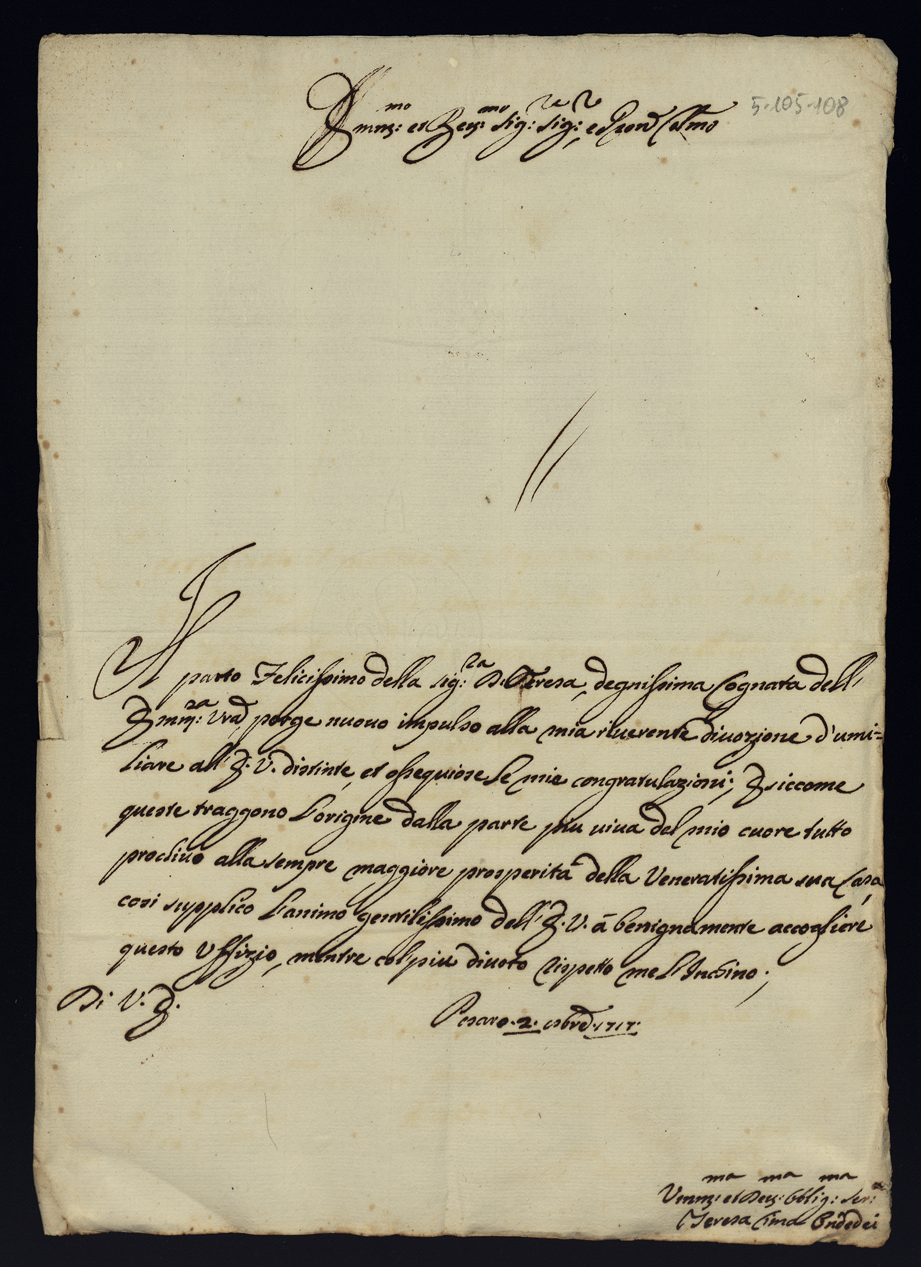 5-105-108
Emin:mo et Rev:mo Sig:re Sig:re, e Pron Col:mo
Il parto Felicissimo della Sig:ra D. Teresa, degnissima Cognata dell'
Emin:za Vra, porge nuovo impulso alla mia riverente divozione d'umi=
liare all'E. V. distinte, et ossequiose le mie congratulazioni; E siccome
queste traggono l'origine dalla parte piu viva del mio cuore tutto
proclive alla sempre maggiore prosperità della Veneratissima sua Casa,
cosi supplico l'animo gentilissimo dell'E. V. à benignamente accogliere
questo Uffizio, mentre col piu divoto rispetto me l'Inchino;
Di V. E.
Pesaro. 2. 1717.
Umil:ma et Dev:ma Obblig:ma Ser:a
Teresa Cima